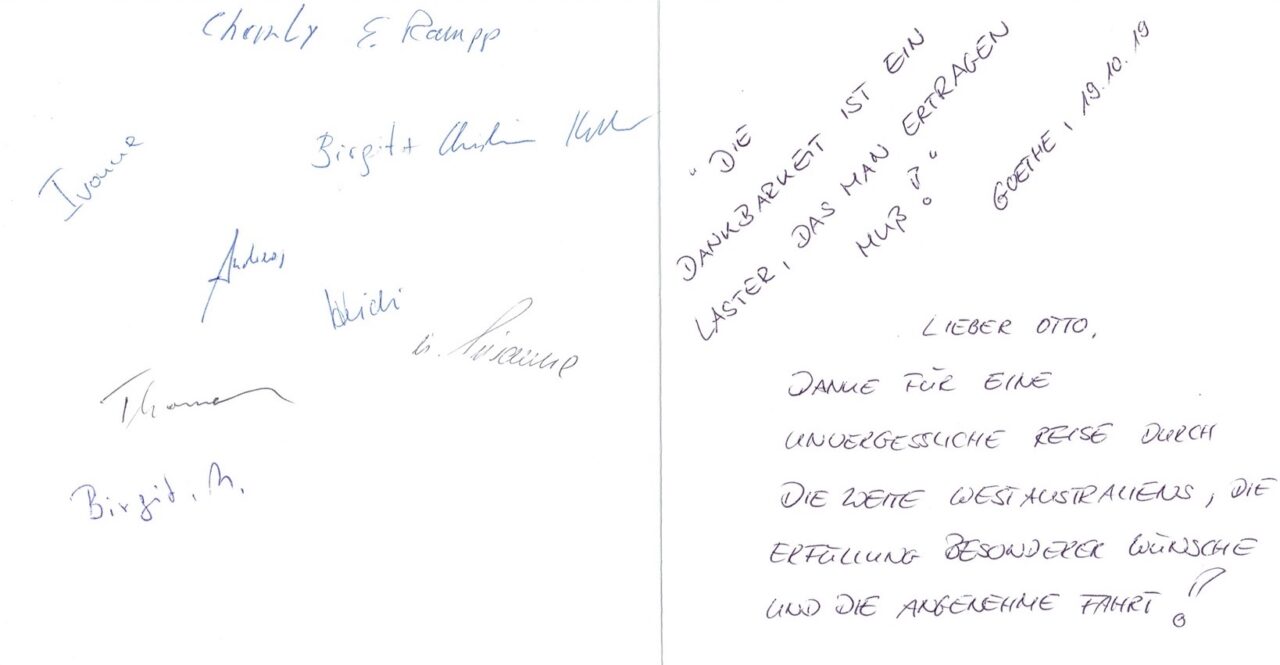 E. Rampp
Ivonne
Birgit + Christian
Andreas
Heidi
u. Susanne
Thomas
Birgit. M.
"DIE
DANKBARKEIT IST EIN
LASTER, DAS MAN ERTRAGEN
MUß!"
GOETHE, 19.10.19
LIEBER OTTO,
DANKE FÜR EINE
UNVERGESSLICHE REISE DURCH
DIE WEITE WESTAUSTRALIENS, DIE
ERFÜLLUNG BESONDERER WÜNSCHE
UND DIE ANGENEHME FAHRT!